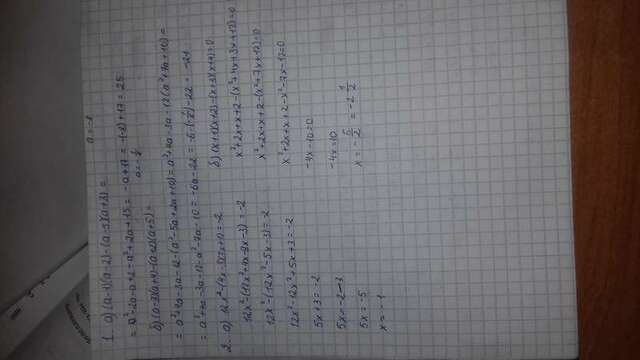 а = -8
1. а) (а-1)(а-2)-(а-5)(а+3) =
= а²-2а-а+2-а²+2а+15 = -а+17 = -(-8)+17 = 25
а = -1/6
б) (а-3)(а+4)-(а+2)(а+5) =
= а²+4а-3а-12-(а²+5а+2а+10) = а²+4а-3а-12-(а²+7а+10) =
= а²+4а-3а-12-а²-7а-10 = -6а-22 = -6·(-1/6)-22 = -21
2. а) 12x²-(4x-3)(3x+1) = -2
12x²-(12x²+4x-9x-3) = -2
12x²-(12x²-5x-3) = -2
12x²-12x²+5x+3 = -2
5x+3 = -2
5x = -2-3
5x = -5
x = -1
б) (x+1)(x+2)-(x+3)(x+4)=0
x²+2x+x+2-(x²+4x+3x+12)=0
x²+2x+x+2-(x²+7x+12)=0
x²+2x+x+2-x²-7x-12=0
-4x-10=0
-4x=10
x = -5/2 = -2 1/2